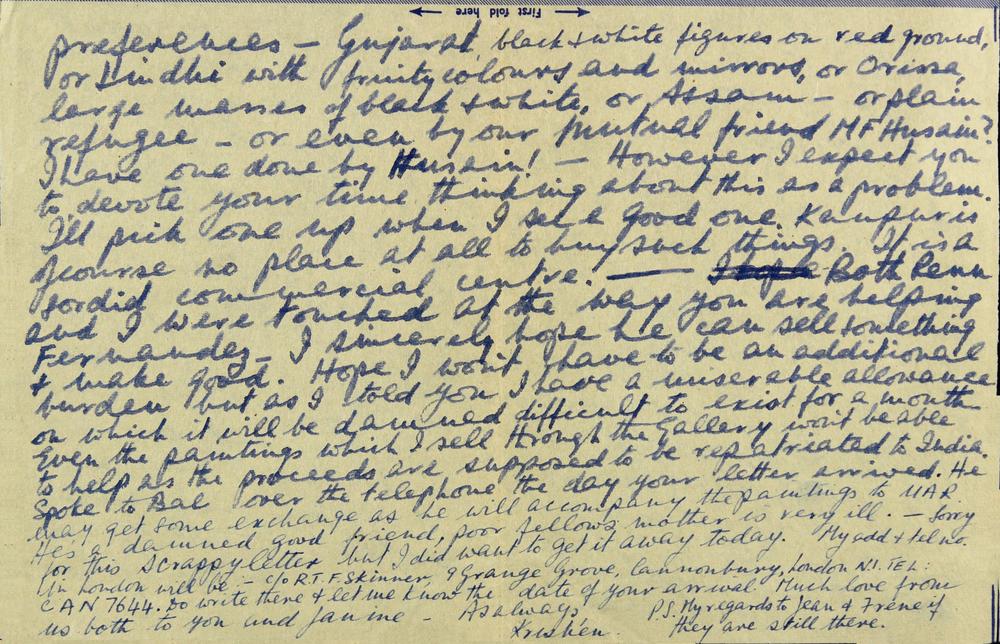 First fold here
preferences – Gujarat, black & white figures on red ground,
or Sindhi with fruity colours and mirrors, or Orissa,
large masses of black & white, or Assam – or plain
refugee – or even by our mutual friend MF Husain?
I have one done by Husain! – However I expect you
to devote your time thinking about this as a problem.
I'll pick one up when I see a good one. Kanpur is
of course no place at all to buy such things. It is a
sordid commercial centre. — Both Renu
and I were touched at the way you are helping
Fernandez – I sincerely hope he can sell something
& make good. Hope I won't have to be an additional
burden but as I told you I have a miserable allowance
on which it will be damned difficult to exist for a month
Even the paintings which I sell through the Gallery won't be able
to help as the proceeds are supposed to be repatriated to India.
Spoke to Bal over the telephone the day your letter arrived. He
may get some exchange as he will accompany the paintings to UAR.
He's a damned good friend, poor fellow's mother is very ill. – Sorry
for this scrappy letter but I did want to get it away today. My add & tel no.
in London will be – c/o R.T.F. Skinner, 9 Grange Grove, Cannonbury, London N1. TEL:
CAN 7644. Do write there & let me know the date of your arrival. Much love from
us both to you and Janine – As always
Krishen.
P.S. My regards to Jean & Irene if
they are still there.